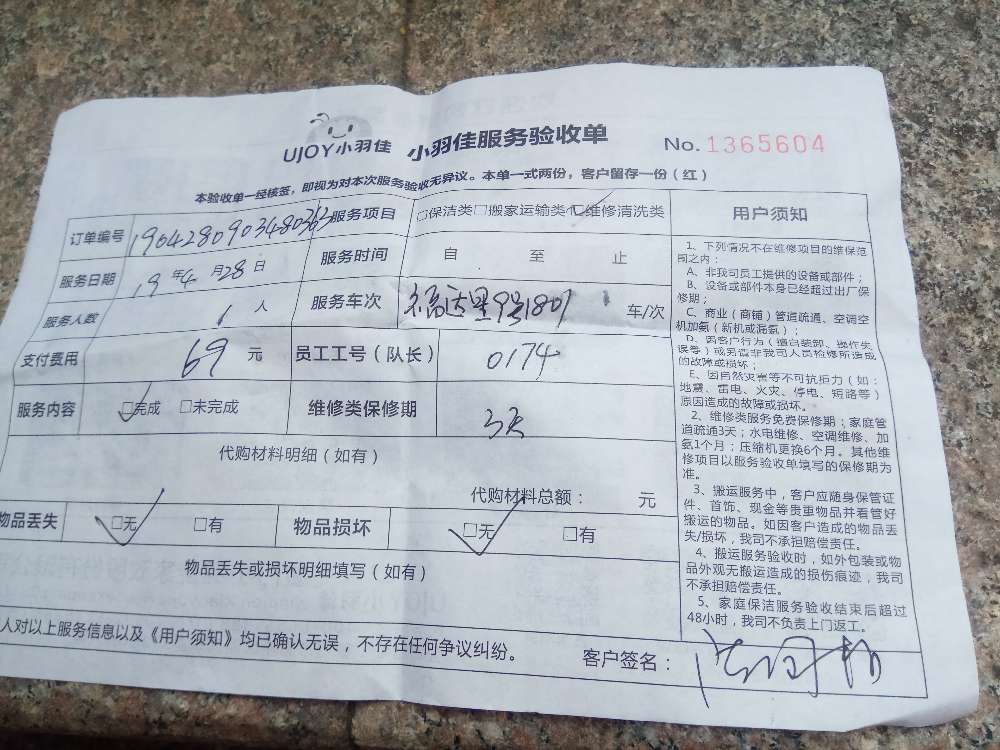 UJOY小羽佳 小羽佳服务验收单 No. 1365604
本验收单一经核签，即视为对本次服务验收无异议。本单一式两份，客户留存一份（红）
订单编号 服务项目 □保洁类□搬家运输类□维修清洗类
服务日期 19 年 4 月 28 日 服务时间 自 至 止
服务人数 1 人 服务车次 福达里9号1801 车/次
支付费用 69 元 员工工号（队长） 0174
服务内容 □完成 □未完成 维修类保修期 3天
代购材料明细（如有）
代购材料总额： 元
物品丢失 □无 □有 物品损坏 □无 □有
物品丢失或损坏明细填写（如有）
人对以上服务信息以及《用户须知》均已确认无误，不存在任何争议纠纷。
客户签名：
用户须知
1、下列情况不在维修项目的维保范
围之内：
A、非我司员工提供的设备或部件；
B、设备或部件本身已经超过出厂保
修期；
C、商业（商铺）管道疏通、空调空
机加氨（新机或漏氨）；
D、因客户行为（擅自装卸、操作失
误等）或另请非我司人员检修所造成
的故障或损坏；
E、因自然灾害等不可抗拒力（如：
地震、雷电、火灾、停电、短路等）
原因造成的故障或损坏。
2、维修类服务免费保修期：家庭管
道疏通3天；水电维修、空调维修、加
氨1个月；压缩机更换6个月。其他维
修项目以服务验收单填写的保修期为
准。
3、搬运服务中，客户应随身保管证
件、首饰、现金等贵重物品并看管好
搬运的物品。如因客户造成的物品丢
失/损坏，我司不承担赔偿责任。
4、搬运服务验收时，如外包装或物
品外观无搬运造成的损伤痕迹，我司
不承担赔偿责任。
5、家庭保洁服务验收结束后超过
48小时，我司不负责上门返工。